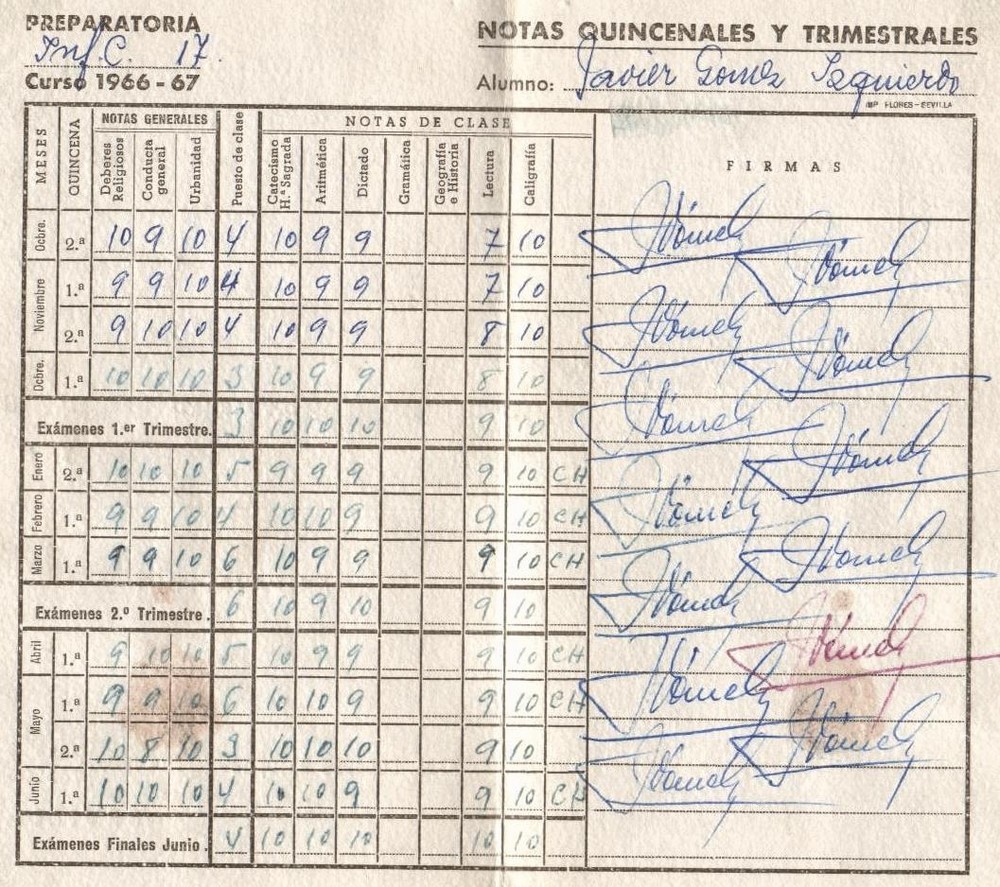 PREPARATORIA
Inf. C. 17.
Curso 1966 - 67
NOTAS QUINCENALES Y TRIMESTRALES
Alumno: Javier Gomez Izquierdo
IMP FLORES - SEVILLA
MESES QUINCENA NOTAS GENERALES Puesto de clase NOTAS DE CLASE FIRMAS
Deberes Religiosos Conducta general Urbanidad Catecismo H.ª Sagrada Aritmética Dictado Gramática Geografía e Historia Lectura Caligrafía
Ocbre. 2.ª 10 9 10 4 10 9 9 7 10
Noviembre 1.ª 9 9 10 4 10 9 9 7 10
2.ª 9 10 10 4 10 9 9 8 10
Dcbre. 1.ª 10 10 10 3 10 9 9 8 10
Exámenes 1.er Trimestre. 3 10 10 10 9 10
Enero 2.ª 10 10 10 5 9 9 9 9 10 CH
Febrero 1.ª 9 9 10 4 10 10 9 9 10 CH
Marzo 1.ª 9 9 10 6 10 9 9 9 10 CH
Exámenes 2.º Trimestre. 6 10 9 10 9 10
Abril 1.ª 9 10 10 5 10 9 9 9 10 CH
Mayo 1.ª 9 9 10 6 10 10 9 9 10 CH
2.ª 10 8 10 3 10 10 10 9 10
Junio 1.ª 10 10 10 4 10 10 9 9 10 CH
Exámenes Finales Junio. 4 10 10 10 10 10